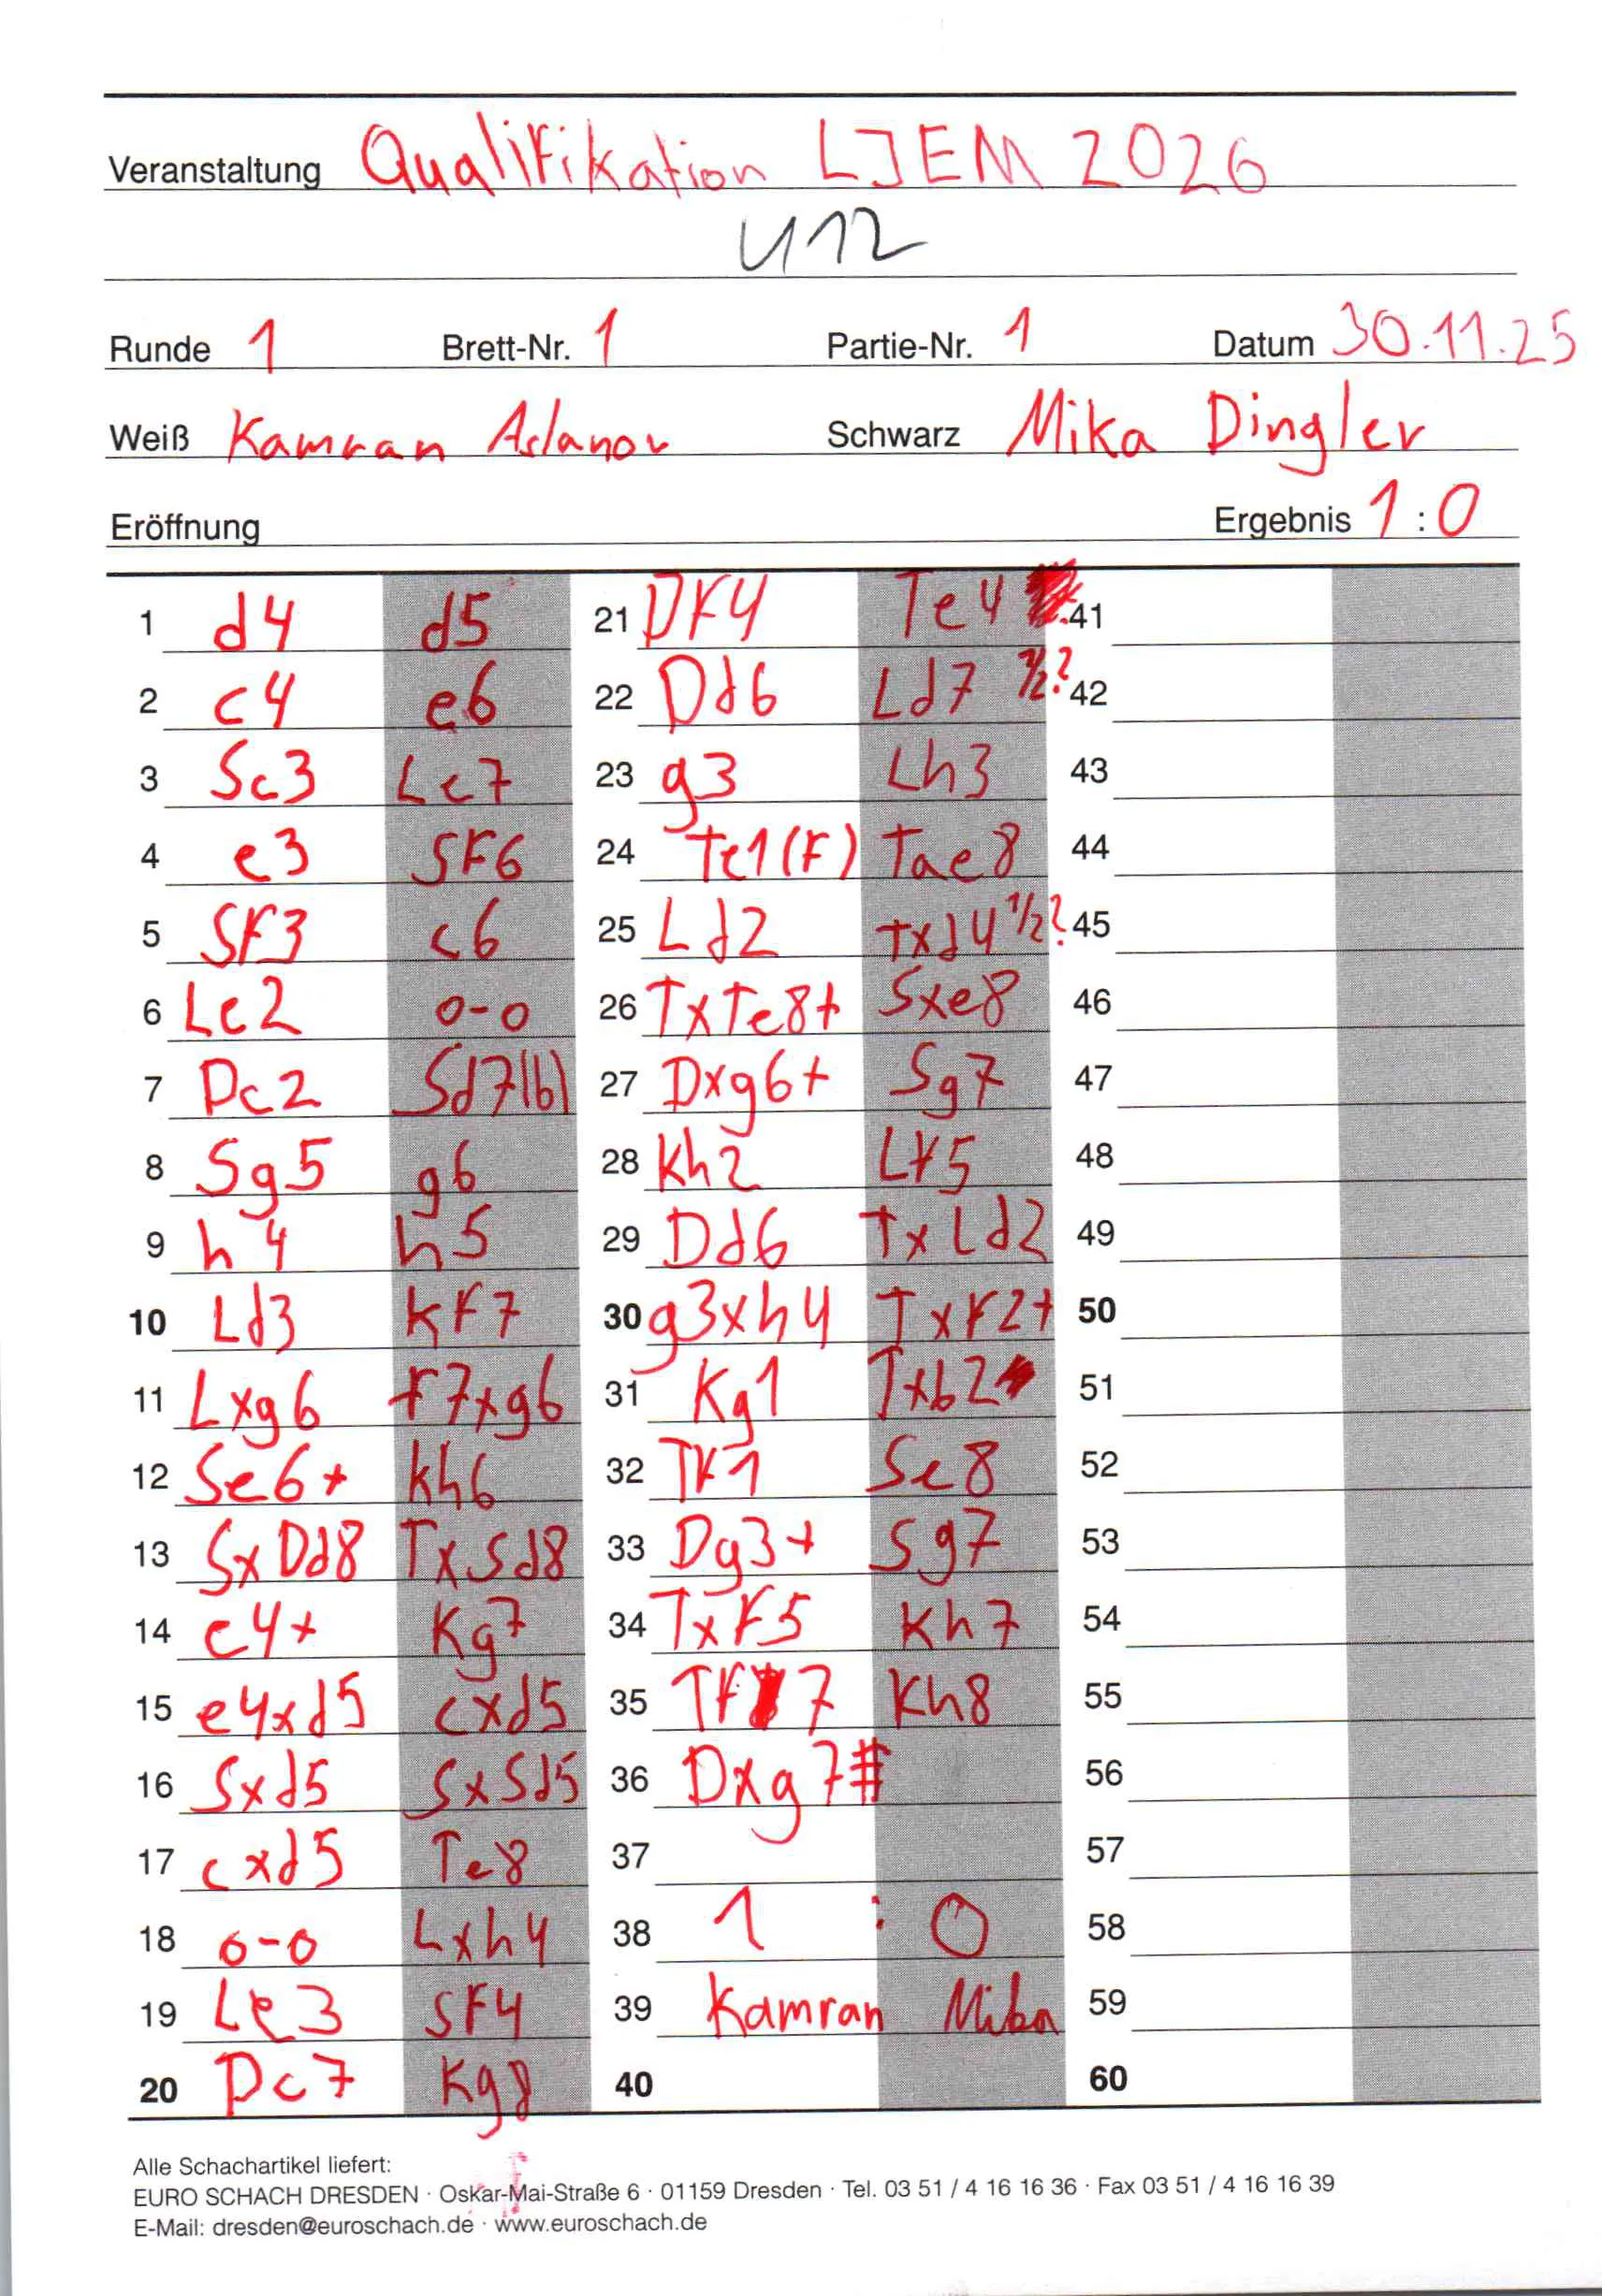 Veranstaltung Qualifikation LJEM 2026
U12
Runde 1 Brett-Nr. 1 Partie-Nr. 1 Datum 30.11.25
Weiß Kamran Aslanov Schwarz Mika Dingler
Eröffnung Ergebnis 1:0
1 d4 d5
2 c4 e6
3 Sc3 Le7
4 e3 Sf6
5 Sf3 c6
6 Le2 0-0
7 Dc2 Sd7(b)
8 Sg5 g6
9 h4 h5
10 Ld3 Kf7
11 Lxg6 f7xg6
12 Se6+ Kh6
13 SxDd8 TxSd8
14 e4+ Kg7
15 e4xd5 cxd5
16 Sxd5 SxSd5
17 cxd5 Te8
18 0-0 Lxh4
19 Le3 Sf4
20 Dc7 Kg8
21 Df4 Te4
22 Dd6 Ld7 ½?
23 g3 Lh3
24 Te1(f) Tae8
25 Ld2 Txd4 ½?
26 TxTe8+ Sxe8
27 Dxg6+ Sg7
28 Kh2 Lf5
29 Dd6 TxLd2
30 g3xh4 Txf2+
31 Kg1 Txb2
32 Tf1 Se8
33 Dg3+ Sg7
34 Txf5 Kh7
35 Tf7 Kh8
36 Dxg7#
37
38 1 : 0
39 Kamran Mika
40
41
42
43
44
45
46
47
48
49
50
51
52
53
54
55
56
57
58
59
60
Alle Schachartikel liefert:
EURO SCHACH DRESDEN · Oskar-Mai-Straße 6 · 01159 Dresden · Tel. 03 51 / 4 16 16 36 · Fax 03 51 / 4 16 16 39
E-Mail: dresden@euroschach.de · www.euroschach.de